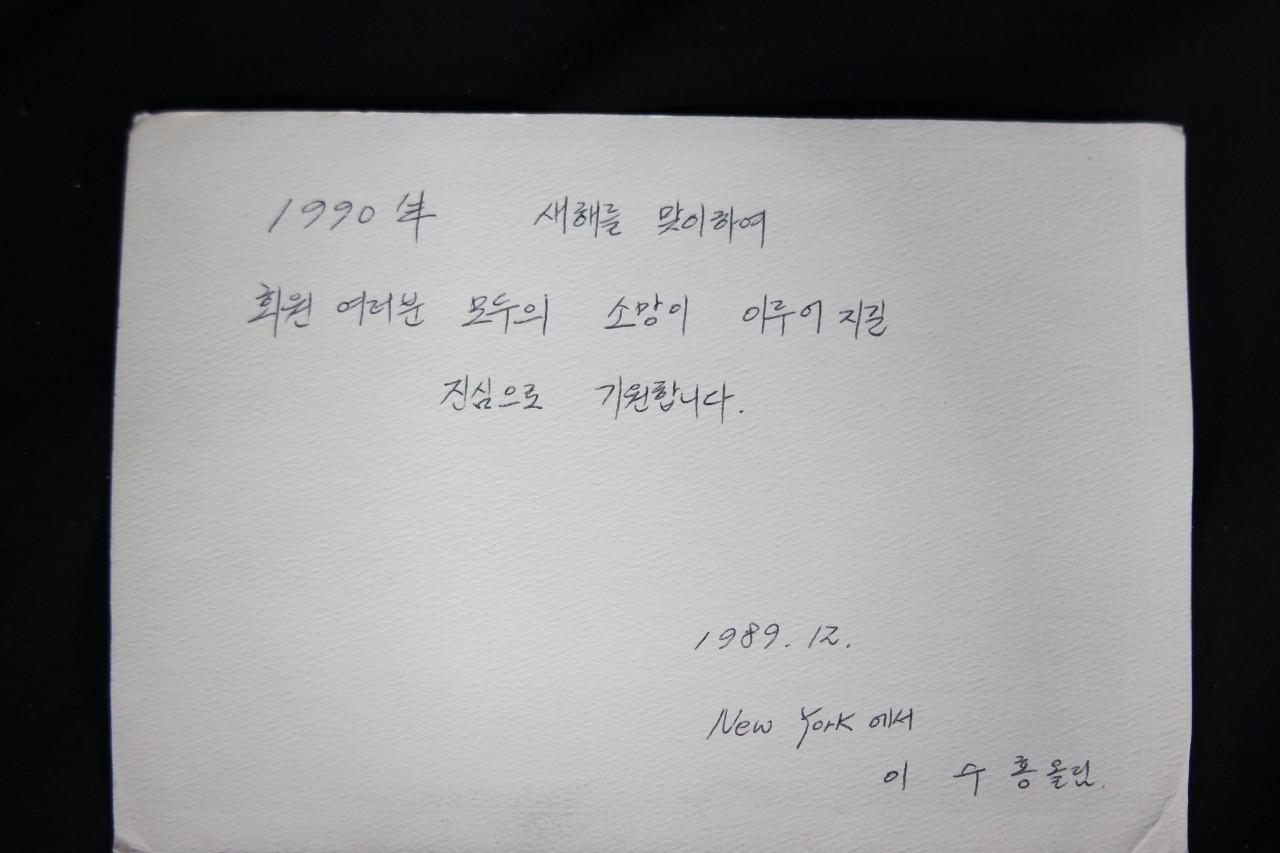 1990年 새해를 맞이하여
회원 여러분 모두의 소망이 이루어 지길
진심으로 기원합니다.
1989. 12.
New York 에서
이 수 홍 올림.